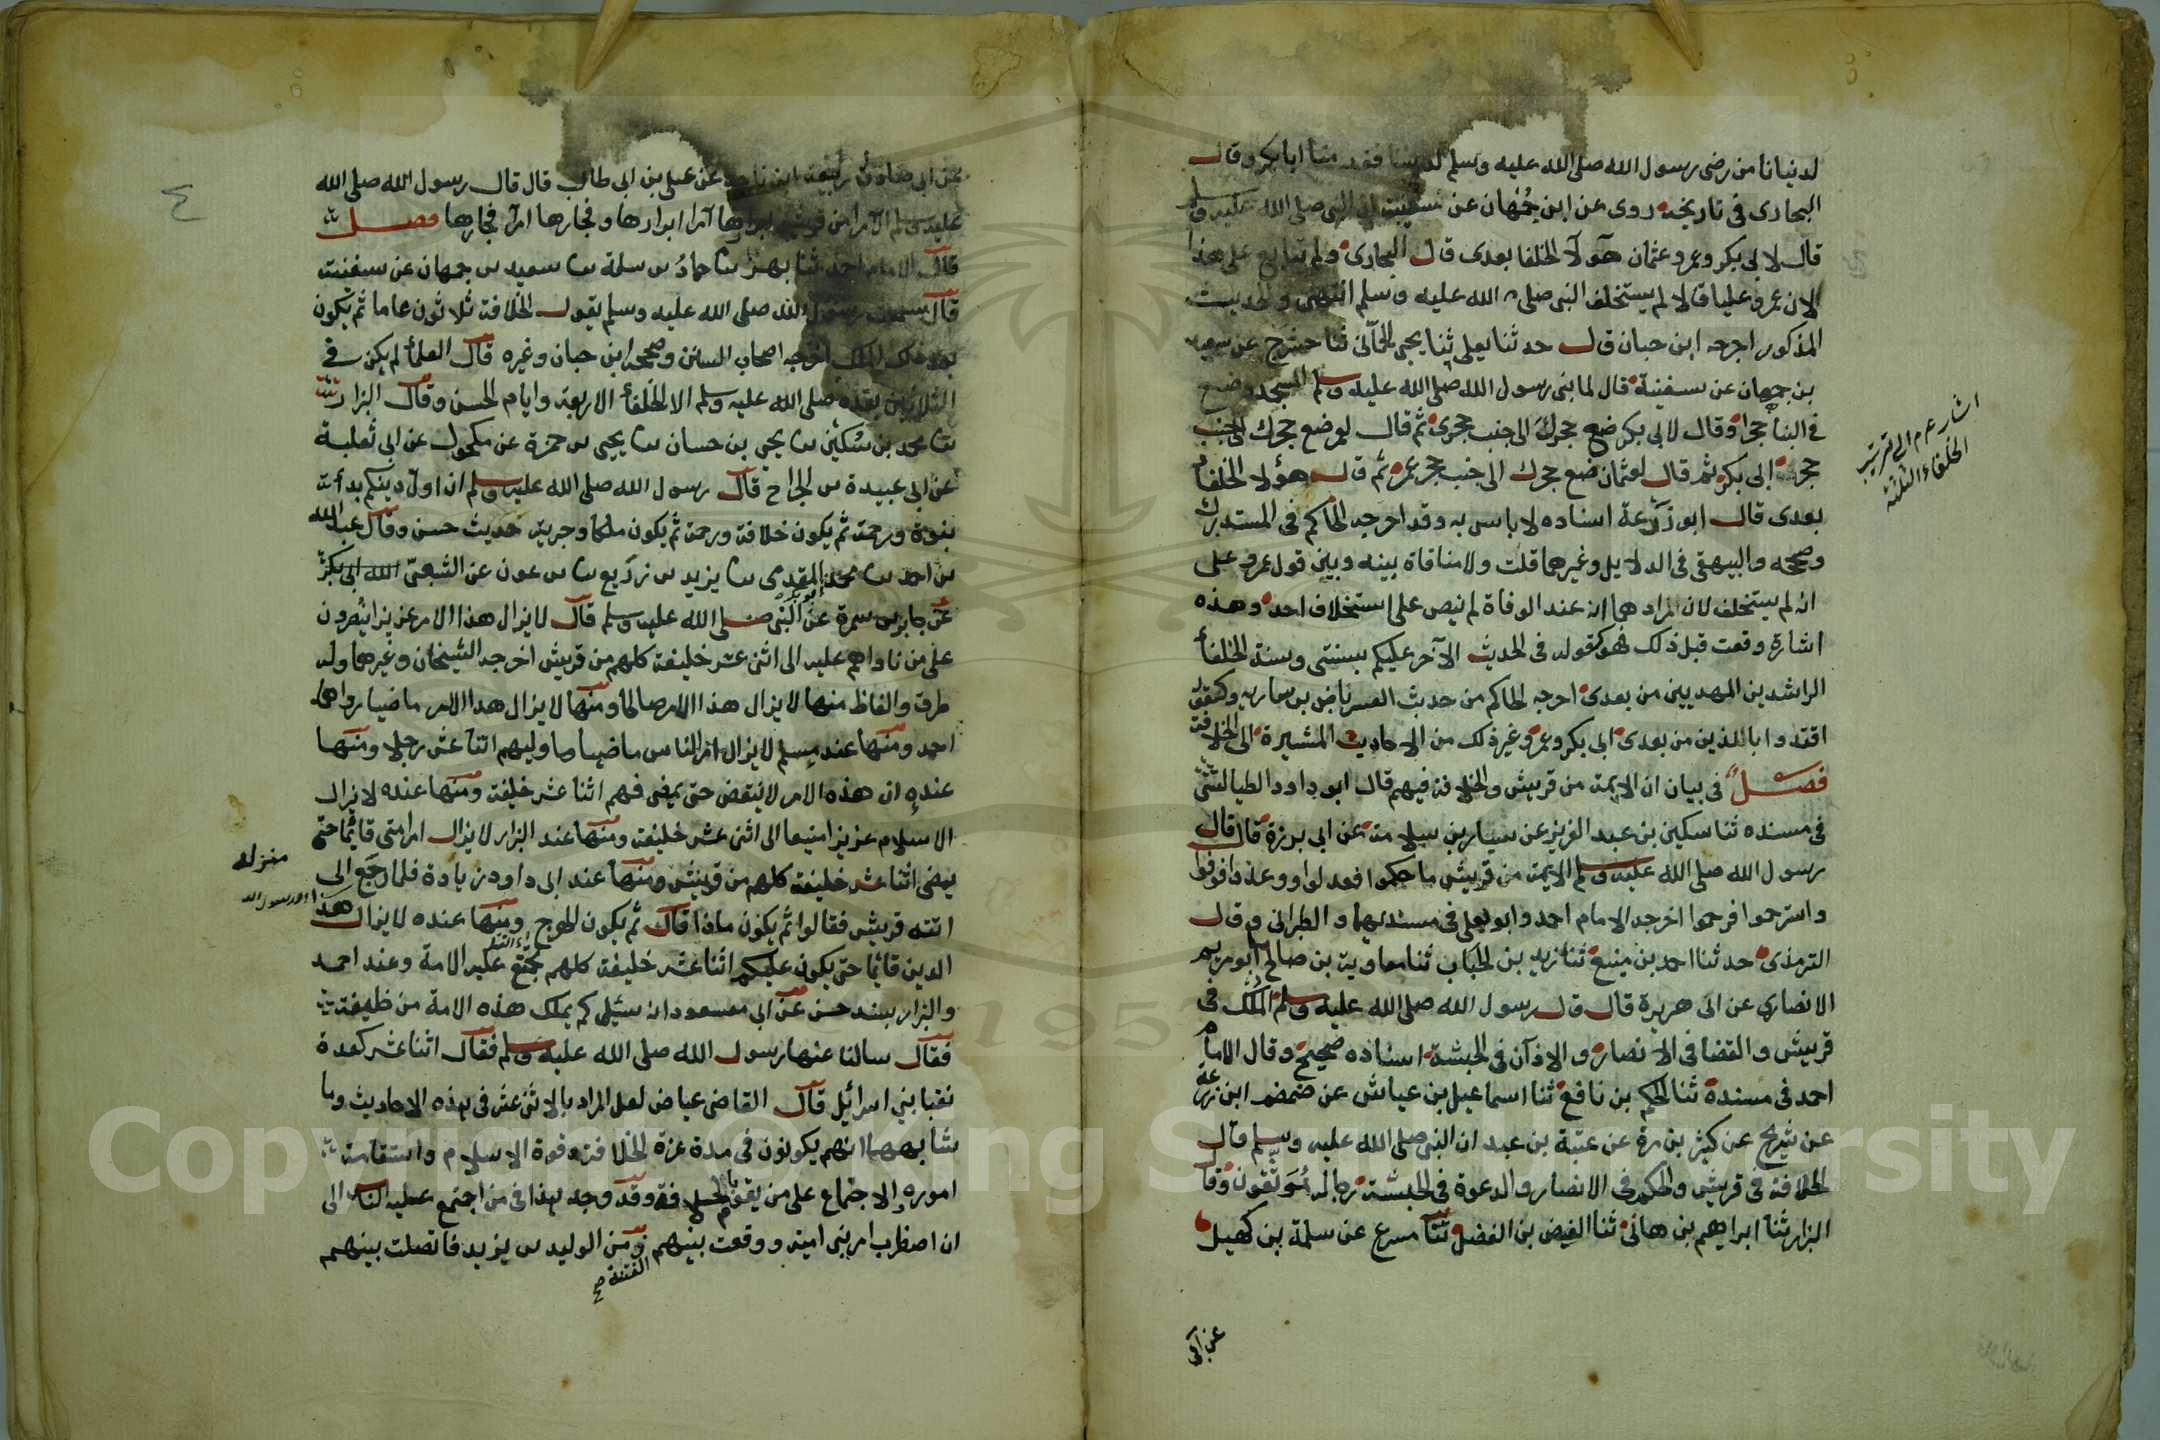 لدنيانا من رضى رسول الله صلى الله عليه وسلم لديننا فقدمنا ابابكر وقال
البخارى فى تاريخه روى عن ابن جُمْهان عن سفينة ان النبى صلى الله عليه وسلم
قال لابى بكر وعمر وعثمان هآولآ الخلفا بعدى قال البخارى ولم يتابع على هذا
لان عمر وعليا قالا لم يستخلف النبى صلى الله عليه وسلم انتهى والحديث
المذكور اخرجه ابن حبان قال حدثنا يعلى ثنا يحيى الحمآنى ثنا حشرج عن سعيد
بن جمهان عن سفينة قال لما بنى رسول الله صلى الله عليه وسلم المسجد وضع
فى البنا حجرا وقال لابى بكر ضع حجرك الى جنب حجرى ثم قال لعمر ضع حجرك الى جنب
حجر ابى بكر ثم قال لعثمان ضع حجرك الى جنب حجر عمر ثم قال هؤلا الخلفا
بعدى قال ابو زرعة اسناده لا باس به وقد اخرجه الحاكم فى المستدرك
وصححه والبيهقى فى الدلايل وغيرهما قلت ولا منافاة بينه وبين قول عمر وعلى
انه لم يستخلف لان مرادهما انه عند الوفاة لم ينص على استخلاف احد وهذه
اشارة وقعت قبل ذلك فهو كقوله فى الحديث الآخر عليكم بسنتى وسنة الخلفأ
الراشدين المهديين من بعدى اخرجه الحاكم من حديث العرباض بن ساريه وكقوله
اقتدوا باللذين من بعدى ابى بكر وعمر وغير ذلك من الاحاديث المشيرة الى الخلافة
فصــل فى بيان ان الايمة من قريش والخلافة فيهم قال ابو داود الطيالسى
فى مسنده ثنا سكين بن عبد العزيز عن سيار بن سلامة عن ابى برزة قال قال
رسول الله صلى الله عليه وسلم الايمة من قريش ما حكموا فعدلوا ووعدوا فوفوا
واسترحموا فرحموا اخرجه الامام احمد وابو يعلى فى مسنديهما والطبرانى وقال
الترمذى حدثنا احمد بن منيع ثنا زيد بن الحباب ثنا معاوية بن صالح ابو مريم
الانصاري عن ابى هريرة قال قال رسول الله صلى الله عليه وسلم المُلك فى
قريش والقضا فى الانصار والاذان فى الحبشة اسناده صحيح وقال الامام
احمد فى مسنده ثنا الحكم بن نافع ثنا اسماعيل بن عياش عن ضمضم ابن زرعة
عن شريح عن كثير بن مرة عن عتبة بن عبد ان النبى صلى الله عليه وسلم قال
الخلافة فى قريش والحكم فى الانصار والدعوة فى الحبشة رجاله مُوَثقون وقال
البزار ثنا ابراهيم بن هانى ثنا الفيض بن الفضل ثنا مسعر عن سلمة بن كهيل
عن ابى
اشار عم الى ترتيب
الخلفاء الثلثة
٤
عن ابى صادق ربيعة ابن ناجد عن على بن ابى طالب قال قال رسول الله صلى الله
عليه وسلم الامرا من قريش ابرارها امرا ابرارها وفجارها امرآ فجارها فصــل
قال الامام احمد ثنا بهز ثنا حماد بن سلمة ثنا سعيد بن جمهان عن سفينة
قال سمعت رسول الله صلى الله عليه وسلم يقول الخلافة ثلاثون عاما ثم تكون
بعد ذلك الملك اخرجه اصحاب السنن وصححه ابن حبان وغيره قال العلمأ لم يكن فى
الثلاثين بعده صلى الله عليه وسلم الا الخلفأ الاربعة وايام الحسن وقال البزار
ثنا محمد بن سُكَيْن ثنا يحيى بن حسان ثنا يحيى بن حمزة عن مكحول عن ابى ثعلبة
عن ابى عبيدة بن الجراح قال رسول الله صلى الله عليه وسلم ان اول دينكم بدأت
بنبوة ورحمة ثم يكون خلافة ورحمة ثم يكون ملكا وجبرية حديث حسن وقال عبد الله
بن احمد ثنا محمد المقدمى ثنا يزيد بن زريع ثنا بن عون عن الشعبى
عن جابر بن سمرة عن النبى صلى الله عليه وسلم قال لا يزال هذا الامر عزيزا ينصرون
على من ناواهم عليه الى اثنى عشر خليفة كلهم من قريش اخرجه الشيخان وغيرهما وله
طرق والفاظ منها لا يزال هذا الامر صالحا ومنها لا يزال هذا الامر ماضيا رواهما
احمد ومنها عند مسلم لا يزال امر الناس ماضيا ما وليهم اثنا عشر رجلا ومنها
عنده ان هذه الامر لا ينقضى حتى يمضى فيهم اثنا عشر خليفة ومنها عنده لا يزال
الاسلام عزيزا منيعا الى اثنى عشر خليفة ومنها عند البزار لا يزال امر امتى قائما حتى
يمضى اثنا عشر خليفة كلهم من قريش ومنها عند ابى داود زيادة فلما رجع الى
منزله
اتته قريش فقالوا ثم يكون ماذا قال ثم يكون الهرج ومنها عنده لا يزال هذا
الدين قائما حتى يكون عليكم اثنا عشر خليفة كلهم تجتمع عليه الامة وعند احمد
والبزار بسند حسن عن ابى مسعود انه سئل كم يملك هذه الامة من خليفة
فقال سالنا عنها رسول الله صلى الله عليه وسلم فقال اثنا عشر كعدة
نقبا بني اسرائيل قال القاضى عياض لعل المراد بالاثنى عشر فى هذه الاحاديث وما
شابهها انهم يكونون فى مدة عزة الخلافة وقوة الاسلام واستقامة
اموره والاجتماع على من يقوم بالخلافة وقد وجد هذا فى من اجتمع عليه الناس الى
ان اضطرب امر بنى امية ووقعت بينهم زمن الوليد بن يزيد فاتصلت بينهم
الفتنة صح